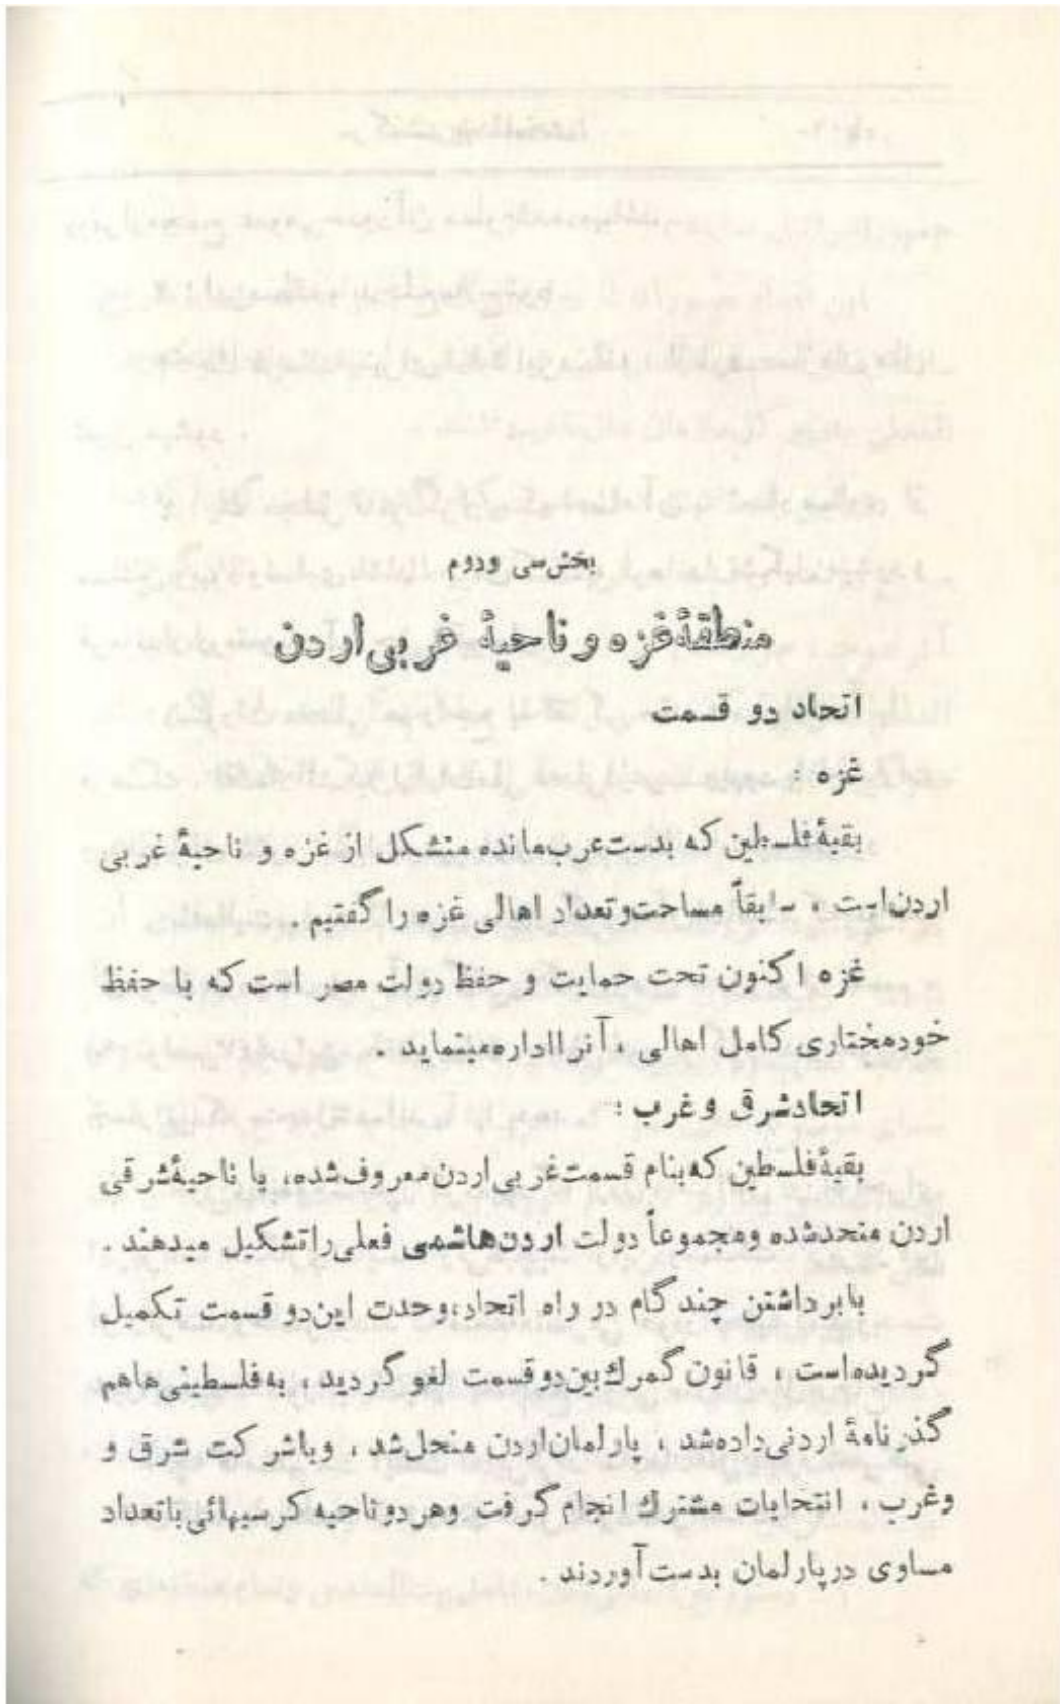 بخش سی ودوم
منطقهٔ غزه و ناحیهٔ غربی اردن
اتحاد دو قسمت
غزه :
بقیهٔ فلسطین که بدست عرب مانده متشکل از غزه و ناحیهٔ غربی
اردن است ، سابقاً مساحت و تعداد اهالی غزه را گفتیم .
غزه اکنون تحت حمایت و حفظ دولت مصر است که با حفظ
خودمختاری کامل اهالی ، آنرا اداره مینماید .
اتحاد شرق و غرب :
بقیهٔ فلسطین که بنام قسمت غربی اردن معروف شده، با ناحیهٔ شرقی
اردن متحد شده و مجموعاً دولت اردن هاشمی فعلی را تشکیل میدهند .
با برداشتن چند گام در راه اتحاد، وحدت این دو قسمت تکمیل
گردیده است ، قانون گمرك بین دو قسمت لغو گردید ، به فلسطینی ها هم
گذرنامهٔ اردنی داده شد ، پارلمان اردن منحل شد ، و باشرکت شرق و
وغرب ، انتخابات مشترك انجام گرفت و هر دو ناحیه کرسیهائی با تعداد
مساوی در پارلمان بدست آوردند .